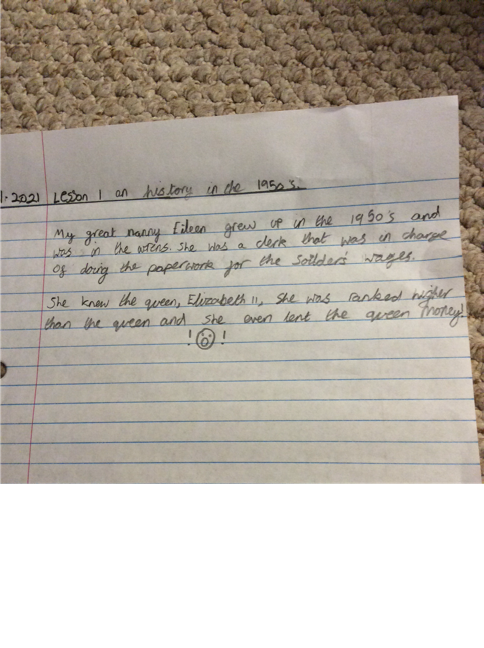 1.2021 Lesson 1 an history in the 1950's.
My great nanny Eileen grew up in the 1950's and
was in the wrens. She was a clerk that was in charge
of doing the paperwork for the Soilders' wages.
She knew the queen, Elizabeth II, She was ranked higher
than the queen and she even lent the queen money!
! !